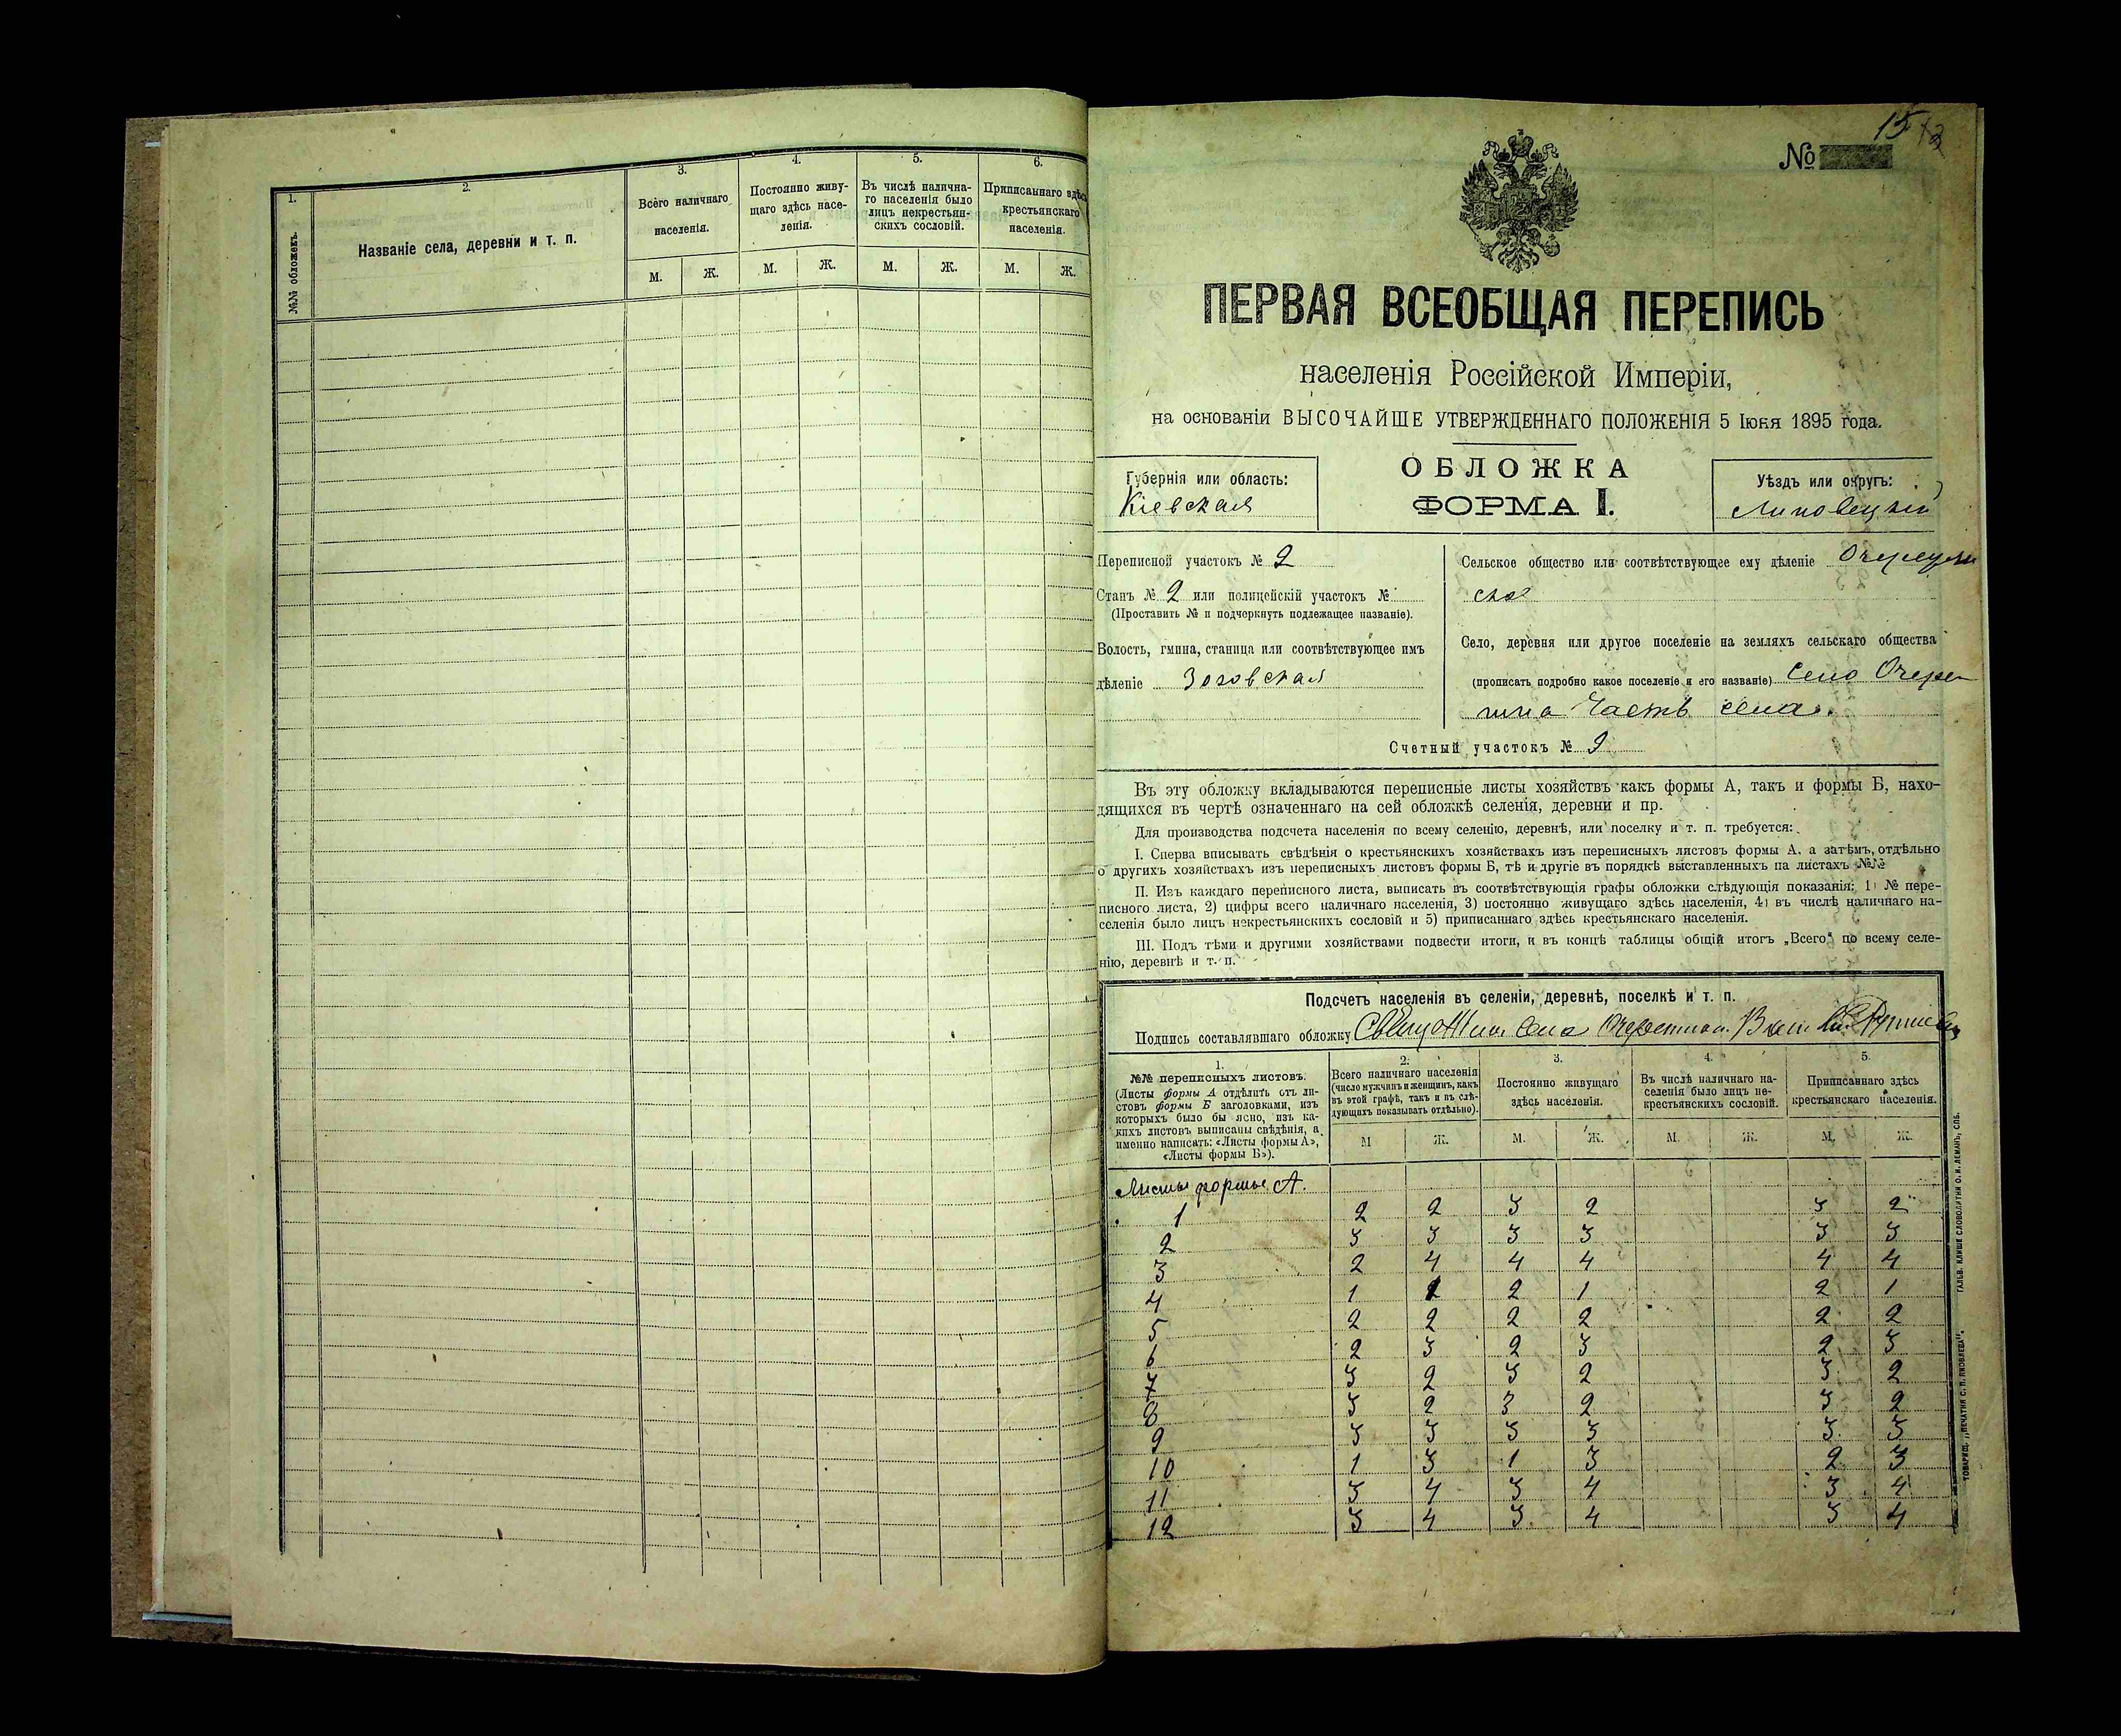 1.
2.
3.
4.
5.
6.
№№ обложекъ.
Названіе села, деревни и т. п.
Всего наличнаго
населенія.
Постоянно живу-
щаго здѣсь насе-
ленія.
Въ числѣ налична-
го населенія было
лицъ некрестьян-
скихъ сословій.
Приписаннаго здѣсь
крестьянскаго
населенія.
М. Ж. М. Ж. М. Ж. М. Ж.
15
№
ПЕРВАЯ ВСЕОБЩАЯ ПЕРЕПИСЬ
населенія Россійской Имперіи,
на основаніи ВЫСОЧАЙШЕ УТВЕРЖДЕННАГО ПОЛОЖЕНІЯ 5 Іюня 1895 года.
Губернія или область:
Кіевская
ОБЛОЖКА
ФОРМА I.
Уѣздъ или округъ:
Липовецкій
Переписной участокъ № 2
Станъ № 2 или полицейскій участокъ №
(Проставить № и подчеркнуть подлежащее названіе).
Волость, гмина, станица или соотвѣтствующее имъ
дѣленіе Зозовская
Сельское общество или соотвѣтствующее ему дѣленіе
ское
Село, деревня или другое поселеніе на земляхъ сельскаго общества
(прописать подробно какое поселеніе и его названіе) Село Очерет
нина Часть села.
Счетный участокъ № 9
Въ эту обложку вкладываются переписные листы хозяйствъ какъ формы А, такъ и формы Б, нахо-
дящихся въ чертѣ означеннаго на сей обложкѣ селенія, деревни и пр.
Для производства подсчета населенія по всему селенію, деревнѣ, или поселку и т. п. требуется:
I. Сперва вписывать свѣдѣнія о крестьянскихъ хозяйствахъ изъ переписныхъ листовъ формы А, а затѣмъ, отдѣльно
о другихъ хозяйствахъ изъ переписныхъ листовъ формы Б, тѣ и другіе въ порядкѣ выставленныхъ на листахъ №№
II. Изъ каждаго переписного листа, выписать въ соотвѣтствующія графы обложки слѣдующія показанія: 1) № пере-
писного листа, 2) цифры всего наличнаго населенія, 3) постоянно живущаго здѣсь населенія, 4) въ числѣ наличнаго на-
селенія было лицъ некрестьянскихъ сословій и 5) приписаннаго здѣсь крестьянскаго населенія.
III. Подъ тѣми и другими хозяйствами подвести итоги, и въ концѣ таблицы общій итогъ „Всего“ по всему селе-
нію, деревнѣ и т. п.
Подсчетъ населенія въ селеніи, деревнѣ, поселкѣ и т. п.
Подпись составлявшаго обложку села
1.
№№ переписныхъ листовъ.
(Листы формы А отдѣлить отъ ли-
стовъ формы Б заголовками, изъ
которыхъ было бы ясно, изъ ка-
кихъ листовъ выписаны свѣдѣнія, а
именно написать: «Листы формы А»,
«Листы формы Б»).
2.
Всего наличнаго населенія
(число мужчинъ и женщинъ, какъ
въ этой графѣ, такъ и въ слѣ-
дующихъ показывать отдѣльно).
3.
Постоянно живущаго
здѣсь населенія.
4.
Въ числѣ наличнаго на-
селенія было лицъ не-
крестьянскихъ сословій.
5.
Приписаннаго здѣсь
крестьянскаго населенія.
М Ж. М. Ж. М. Ж. М. Ж.
Листы формы А.
1 2 2 3 2 3 2
2 3 3 3 3 3 3
3 2 4 4 4 4 4
4 1 1 2 1 2 1
5 2 2 2 2 2 2
6 2 3 2 3 2 3
7 3 2 3 2 3 2
8 3 2 3 2 3 2
9 3 3 3 3 3 3
10 1 3 1 3 2 3
11 3 4 3 4 3 4
12 3 4 3 4 3 4
ГАЛЬВ. КЛИШЕ СЛОВОЛИТНИ О. И. ЛЕМАНЪ, СПБ.
ТОВАРИЩ. „ПЕЧАТНЯ С. П. ЯКОВЛЕВА“.